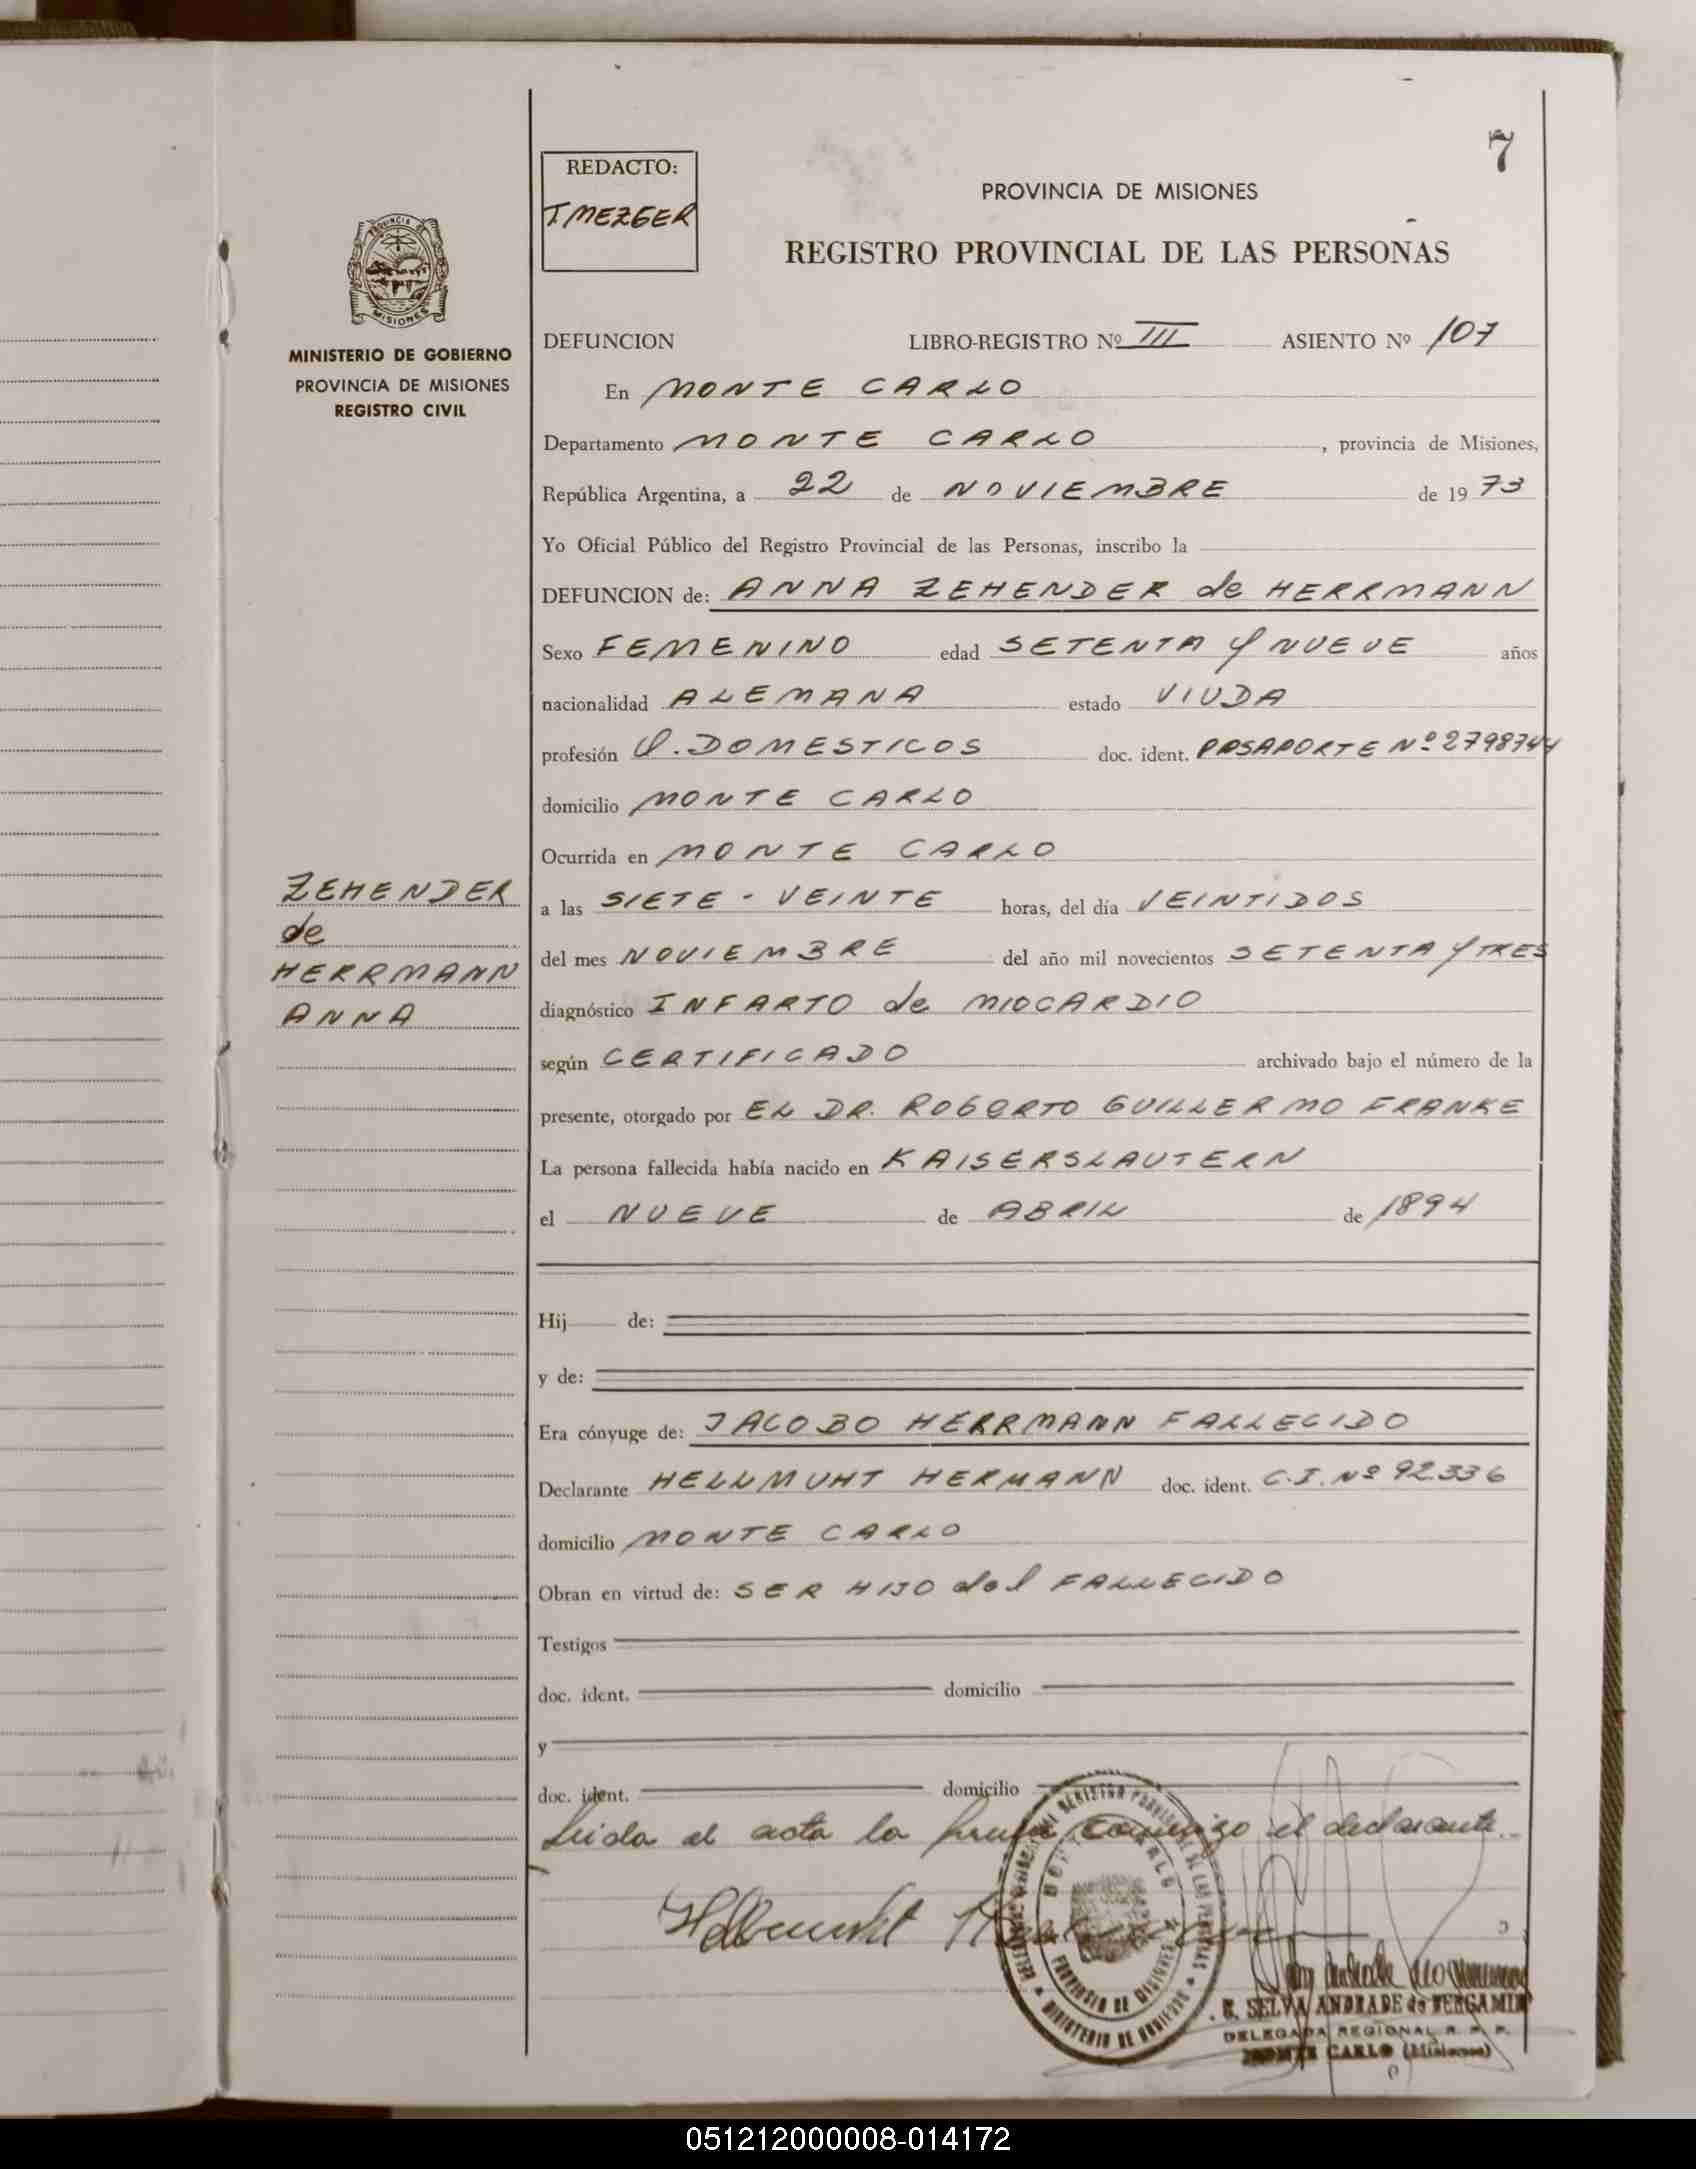 7
REDACTO:
T. MEZGER
PROVINCIA DE MISIONES
REGISTRO PROVINCIAL DE LAS PERSONAS
PROVINCIA DE
MISIONES
MINISTERIO DE GOBIERNO
PROVINCIA DE MISIONES
REGISTRO CIVIL
DEFUNCION LIBRO-REGISTRO Nº III ASIENTO Nº 107
En MONTE CARLO
Departamento MONTE CARLO, provincia de Misiones,
República Argentina, a 22 de NOVIEMBRE de 1973
Yo Oficial Público del Registro Provincial de las Personas, inscribo la
DEFUNCION de: ANNA ZEHENDER de HERRMANN
Sexo FEMENINO edad SETENTA Y NUEVE años
nacionalidad ALEMANA estado VIUDA
profesión Q. DOMESTICOS doc. ident. PASAPORTE Nº 2798744
domicilio MONTE CARLO
Ocurrida en MONTE CARLO
ZEHENDER
de
HERRMANN
ANNA
a las SIETE - VEINTE horas, del día VEINTIDOS
del mes NOVIEMBRE del año mil novecientos SETENTA Y TRES
diagnóstico INFARTO de MIOCARDIO
según CERTIFICADO archivado bajo el número de la
presente, otorgado por EL DR. ROBERTO GUILLERMO FRANKE
La persona fallecida había nacido en KAISERSLAUTERN
el NUEVE de ABRIL de 1894
Hij de:
y de:
Era cónyuge de: JACOBO HERRMANN FALLECIDO
Declarante HELLMUHT HERMANN doc. ident. C.I. Nº 92336
domicilio MONTE CARLO
Obran en virtud de: SER HIJO del FALLECIDO
Testigos
doc. ident. domicilio
y
doc. ident. domicilio
Leida el acta la firma conmigo el declarante.
Hellmuht
E. SELVA ANDRADE de BERGAMIN
DELEGADA REGIONAL R. P. P.
MONTE CARLO (Misiones)
PROVINCIA DE MISIONES
MINISTERIO DE GOBIERNO
051212000008-014172